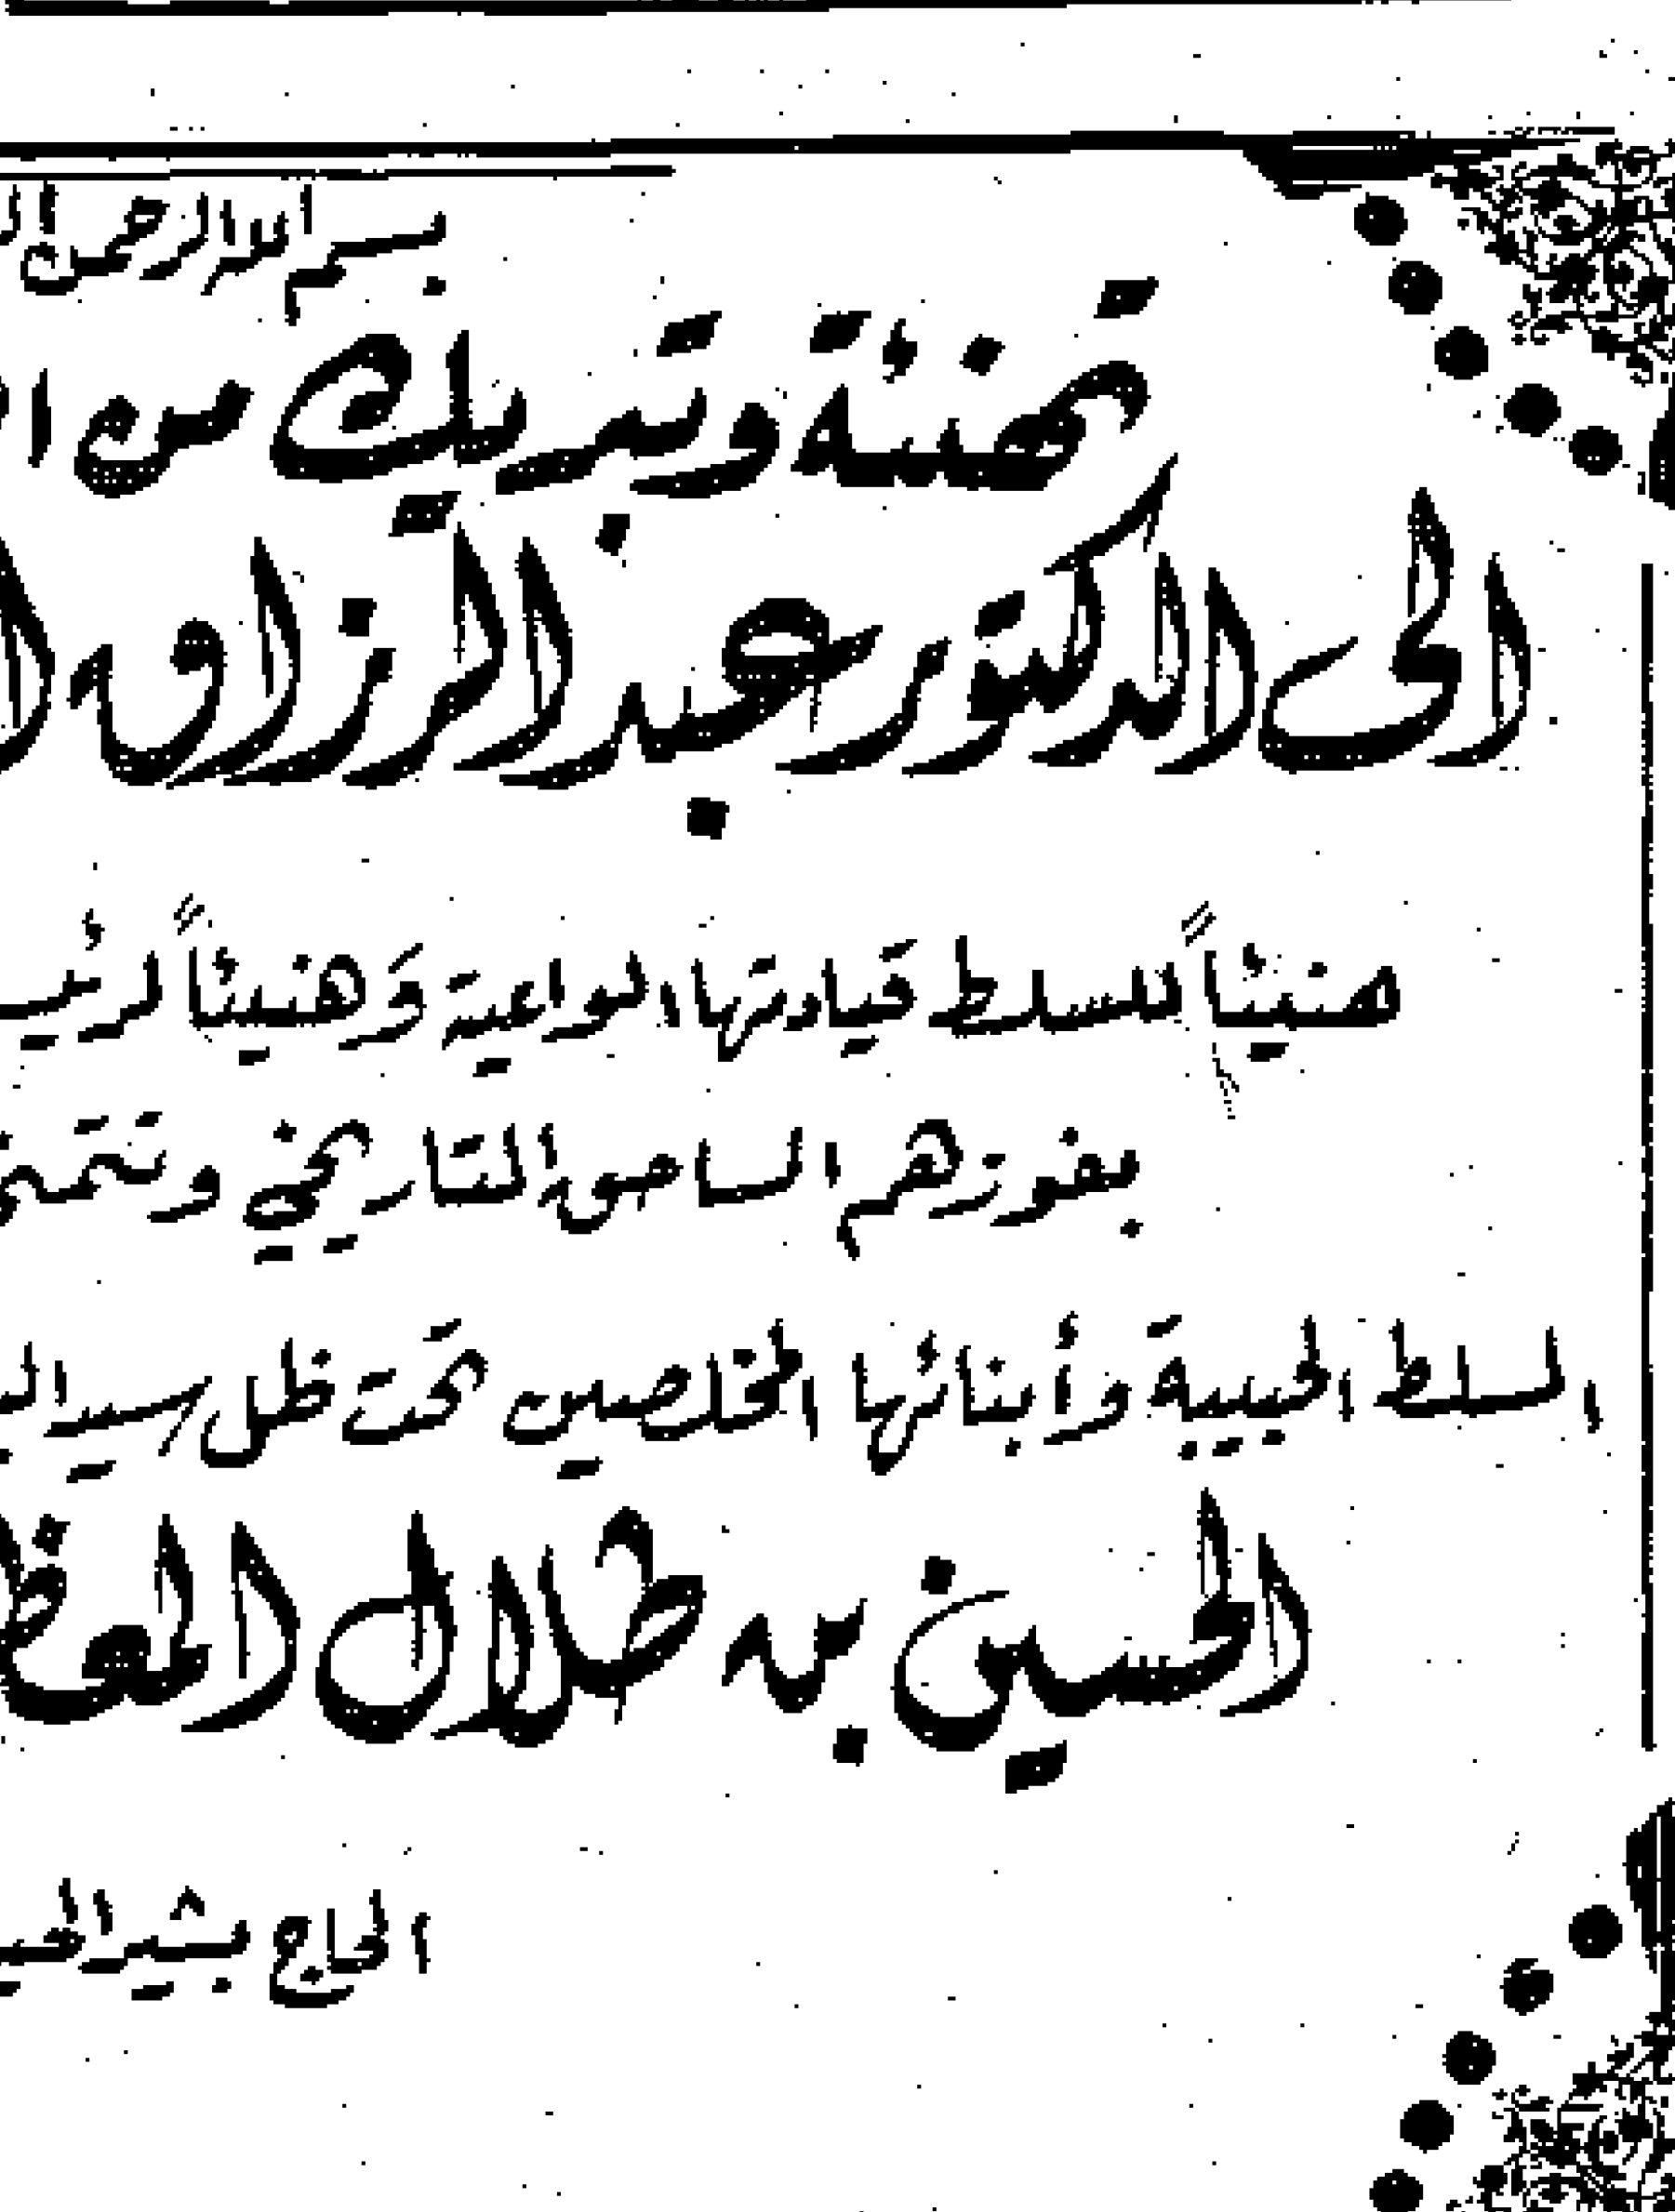 بسم الله الرحمن
تهنئة وتبريك من
الى الدكتور عبد الرزاق
هنيئاً للسلط قيادتها الواعية وَهنيئاً
بفوزهم الساحق التاريخي
السلط الحبيبة وأبنائها المخلصين تحت ظل سيد
الحسين بن طلال
الحاج بشير